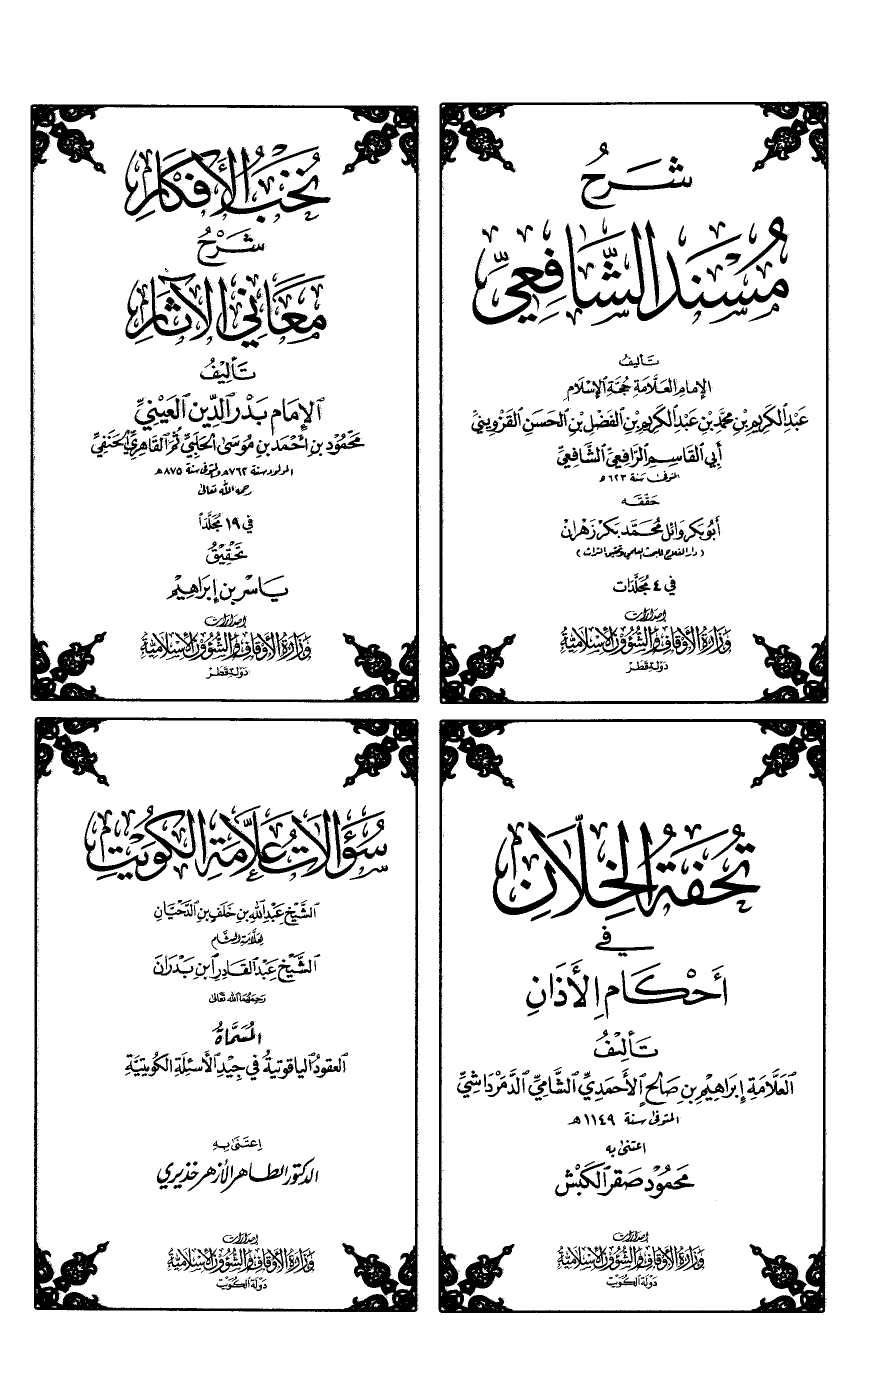 شَرْحُ
مُسْنَدِ الشَّافِعِيِّ
تأليف
الإمام العلّامة حجّة الإسلام
عبد الكريم بن محمد بن عبد الكريم بن الفضل بن الحسن القزويني
أبي القاسم الرافعي الشافعي
المتوفى سنة ٦٢٣ هـ
حقّقه
أبو بكر وائل محمّد بكر زهران
(دار الفلاح للبحث العلمي وتحقيق التراث)
في ٤ مجلّدات
إصدارات
وزارة الأوقاف والشؤون الإسلامية
دولة قطر
نُخَبُ الأَفْكَارِ
شَرْحُ
مَعَانِي الآثَارِ
تأليف
الإمام بدر الدين العيني
محمود بن أحمد بن موسى الحلبي ثم القاهري الحنفي
المولود سنة ٧٦٢هـ والمتوفى سنة ٨٧٥هـ
رحمه الله تعالى
في ١٩ مجلّداً
تحقيق
ياسر بن إبراهيم
إصدارات
وزارة الأوقاف والشؤون الإسلامية
دولة قطر
تُحْفَةُ الخِلَّانِ
في
أَحْكَامِ الأَذَانِ
تأليف
العلّامة إبراهيم بن صالح الأحمدي الشامي الدمرداشي
المتوفى سنة ١١٤٩هـ
اعتنى به
محمود صقر الكبش
إصدارات
وزارة الأوقاف والشؤون الإسلامية
دولة الكويت
سُؤَالَاتُ عَلَّامَةِ الكُوَيْتِ
الشيخ عبد الله بن خلف بن الدحيان
لعلّامة الشام
الشيخ عبد القادر ابن بدران
رحمهما الله تعالى
المسمّاة
العقود الياقوتية في جيد الأسئلة الكويتية
اعتنى به
الدكتور الطاهر الأزهر خذيري
إصدارات
وزارة الأوقاف والشؤون الإسلامية
دولة الكويت